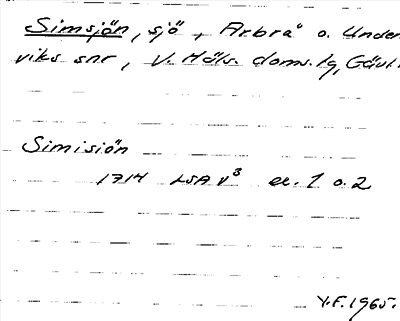 Simsjön, sjö, Arbrå o. Under
viks snr, V. Häls. doms.lg, Gävl.
Simisiön
1714 LSA V3 ex. 1 o. 2
Y.F. 1965.